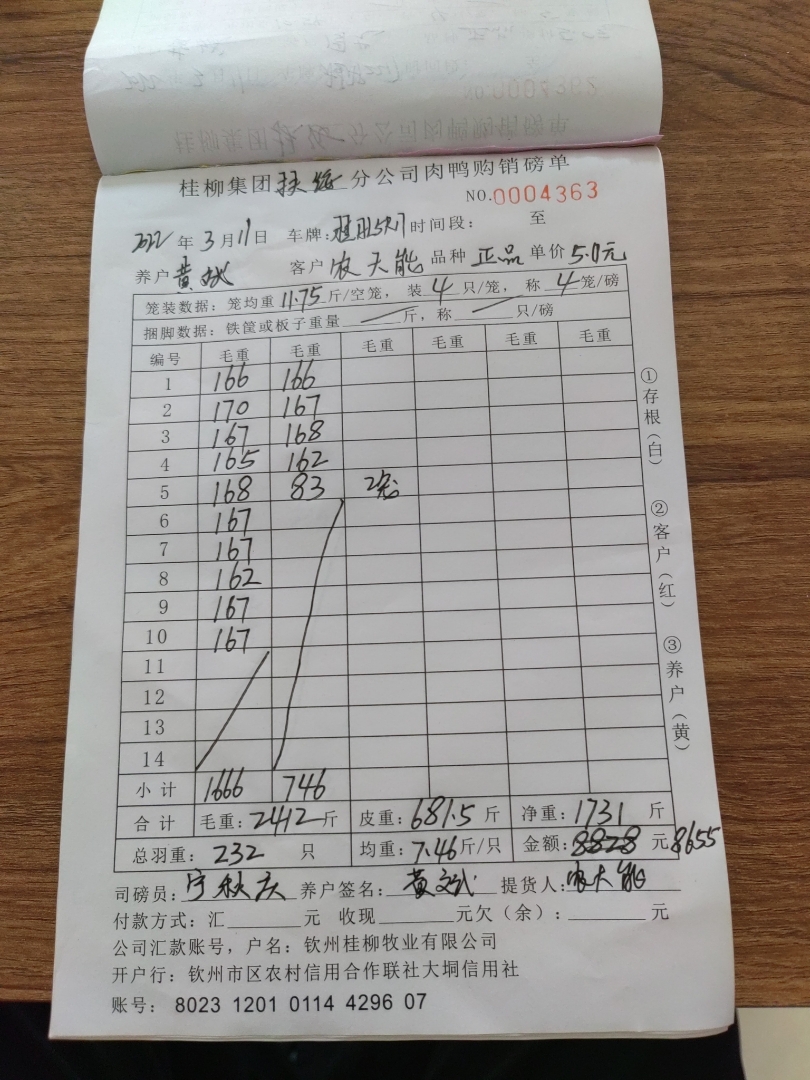 桂柳集团扶绥分公司肉鸭购销磅单
NO.0004363
2022年3月11日 车牌: 时间段: 至
养户黄斌 客户农天能 品种正品 单价5.0元
笼装数据:笼均重11.75斤/空笼,装4只/笼,称4笼/磅
捆脚数据:铁筐或板子重量 斤,称 只/磅
编号 毛重 毛重 毛重 毛重 毛重 毛重
1 166 166
2 170 167
3 167 168
4 165 162
5 168 83 2笼
6 167
7 167
8 162
9 167
10 167
11
12
13
14
小计 1666 746
合计 毛重:2412斤 皮重:681.5斤 净重:1731斤
总羽重:232只 均重:7.46斤/只 金额:8828元 8655
司磅员:宁秋庆 养户签名:黄文斌 提货人:农天能
付款方式:汇 元 收现 元欠(余): 元
公司汇款账号,户名:钦州桂柳牧业有限公司
开户行:钦州市区农村信用合作联社大垌信用社
账号:8023 1201 0114 4296 07
①存根(白)
②客户(红)
③养户(黄)